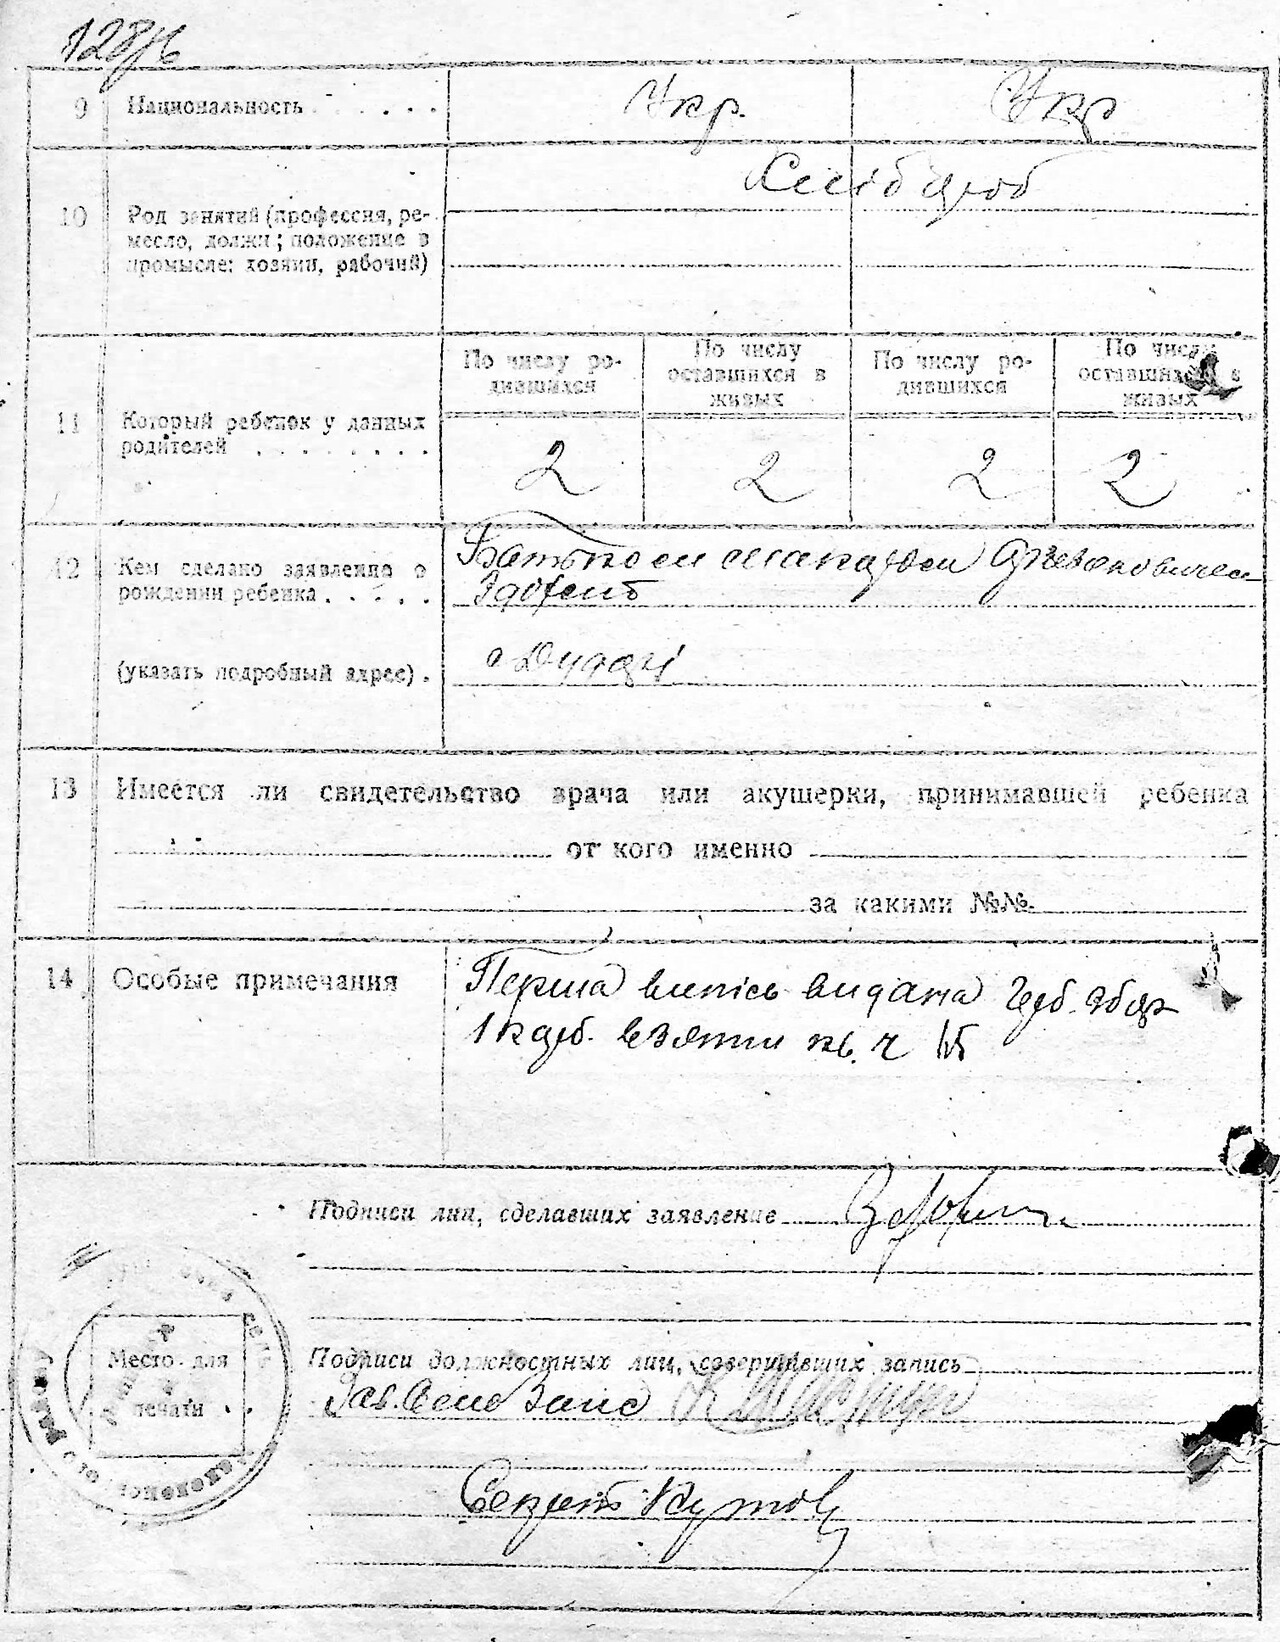 9 Национальность . . . . . Укр. Укр
Хлібороб
10 Род занятий (профессия, ре-
месло, должн; положение в
промысле: хозяин, рабочий)
11 Который ребенок у данных
родителей . . . . . . . .
По числу ро-
дившихся
По числу
оставшихся в
живых
По числу ро-
дившихся
По числу
оставшихся в
живых
2 2 2 2
12 Кем сделано заявление о
рождении ребенка . . . . .
Батьком
(указать подробный адрес) .
с
13 Имеется ли свидетельство врача или акушерки, принимавшей ребенка
от кого именно
за какими №№
14 Особые примечания
Перша випись видана герб. збір
1 карб. взятий кв. ч
Подписи лиц, сделавших заявление
Подписи должностных лиц, совершивших запись
Зав.
Место для
печати